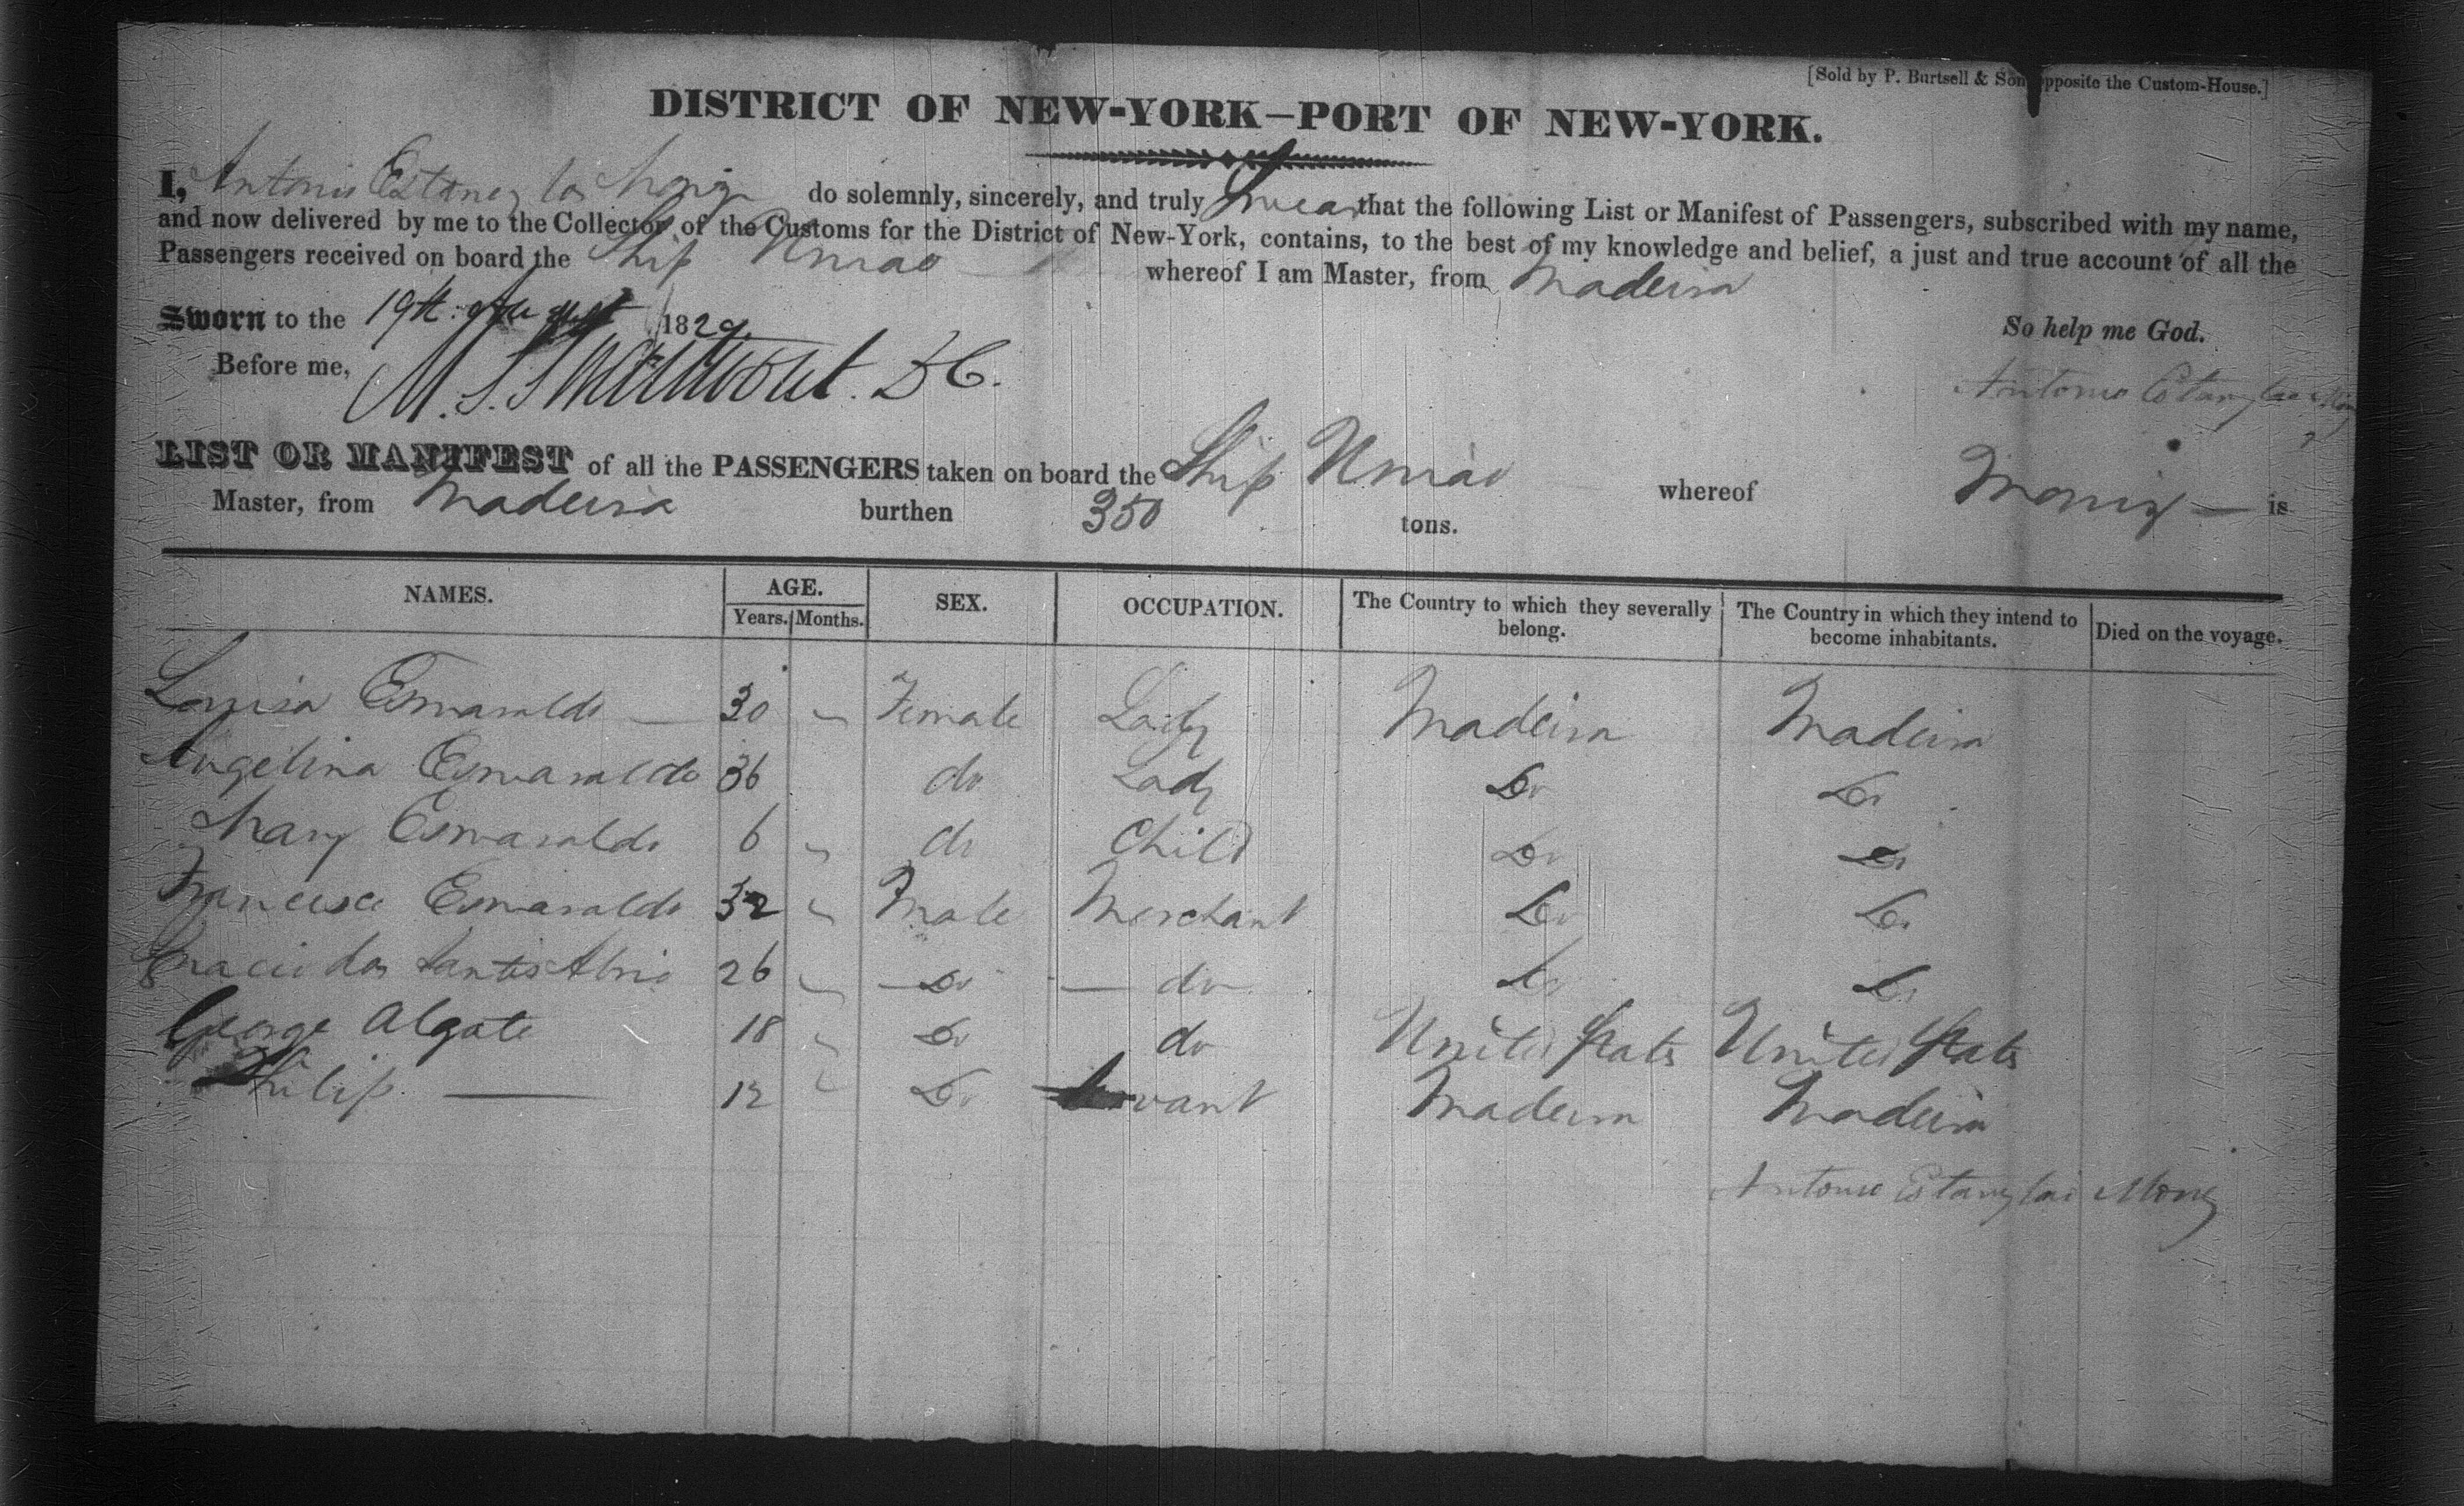 [Sold by P. Burtsell & Son opposite the Custom-House.]
DISTRICT OF NEW-YORK—PORT OF NEW-YORK.
I, Antonio do solemnly, sincerely, and truly Swear that the following List or Manifest of Passengers, subscribed with my name,
and now delivered by me to the Collector of the Customs for the District of New-York, contains, to the best of my knowledge and belief, a just and true account of all the
Passengers received on board the Ship Uniao whereof I am Master, from Madeira
Sworn to the 19th August 1829. So help me God.
Before me, M. S. Swartwout. D C. Antonio
LIST OR MANIFEST of all the PASSENGERS taken on board the Ship Uniao whereof Moniz — is
Master, from Madeira burthen 350 tons.
NAMES. AGE. SEX. OCCUPATION. The Country to which they severally belong. The Country in which they intend to become inhabitants. Died on the voyage.
Years. Months.
Louisa Esmaraldo — 30 " Female Lady Madeira Madeira
Angelina Esmaraldo 36 do Lady Do Do
Mary Esmaraldo 6 " do Child Do Do
Francisco Esmaraldo 32 " Male Merchant Do Do
dos Santos 26 " — Do — do Do Do
George Algate 18 " Do do United States United States
Philip — 12 " Do Servant Madeira Madeira
Antonio Moniz